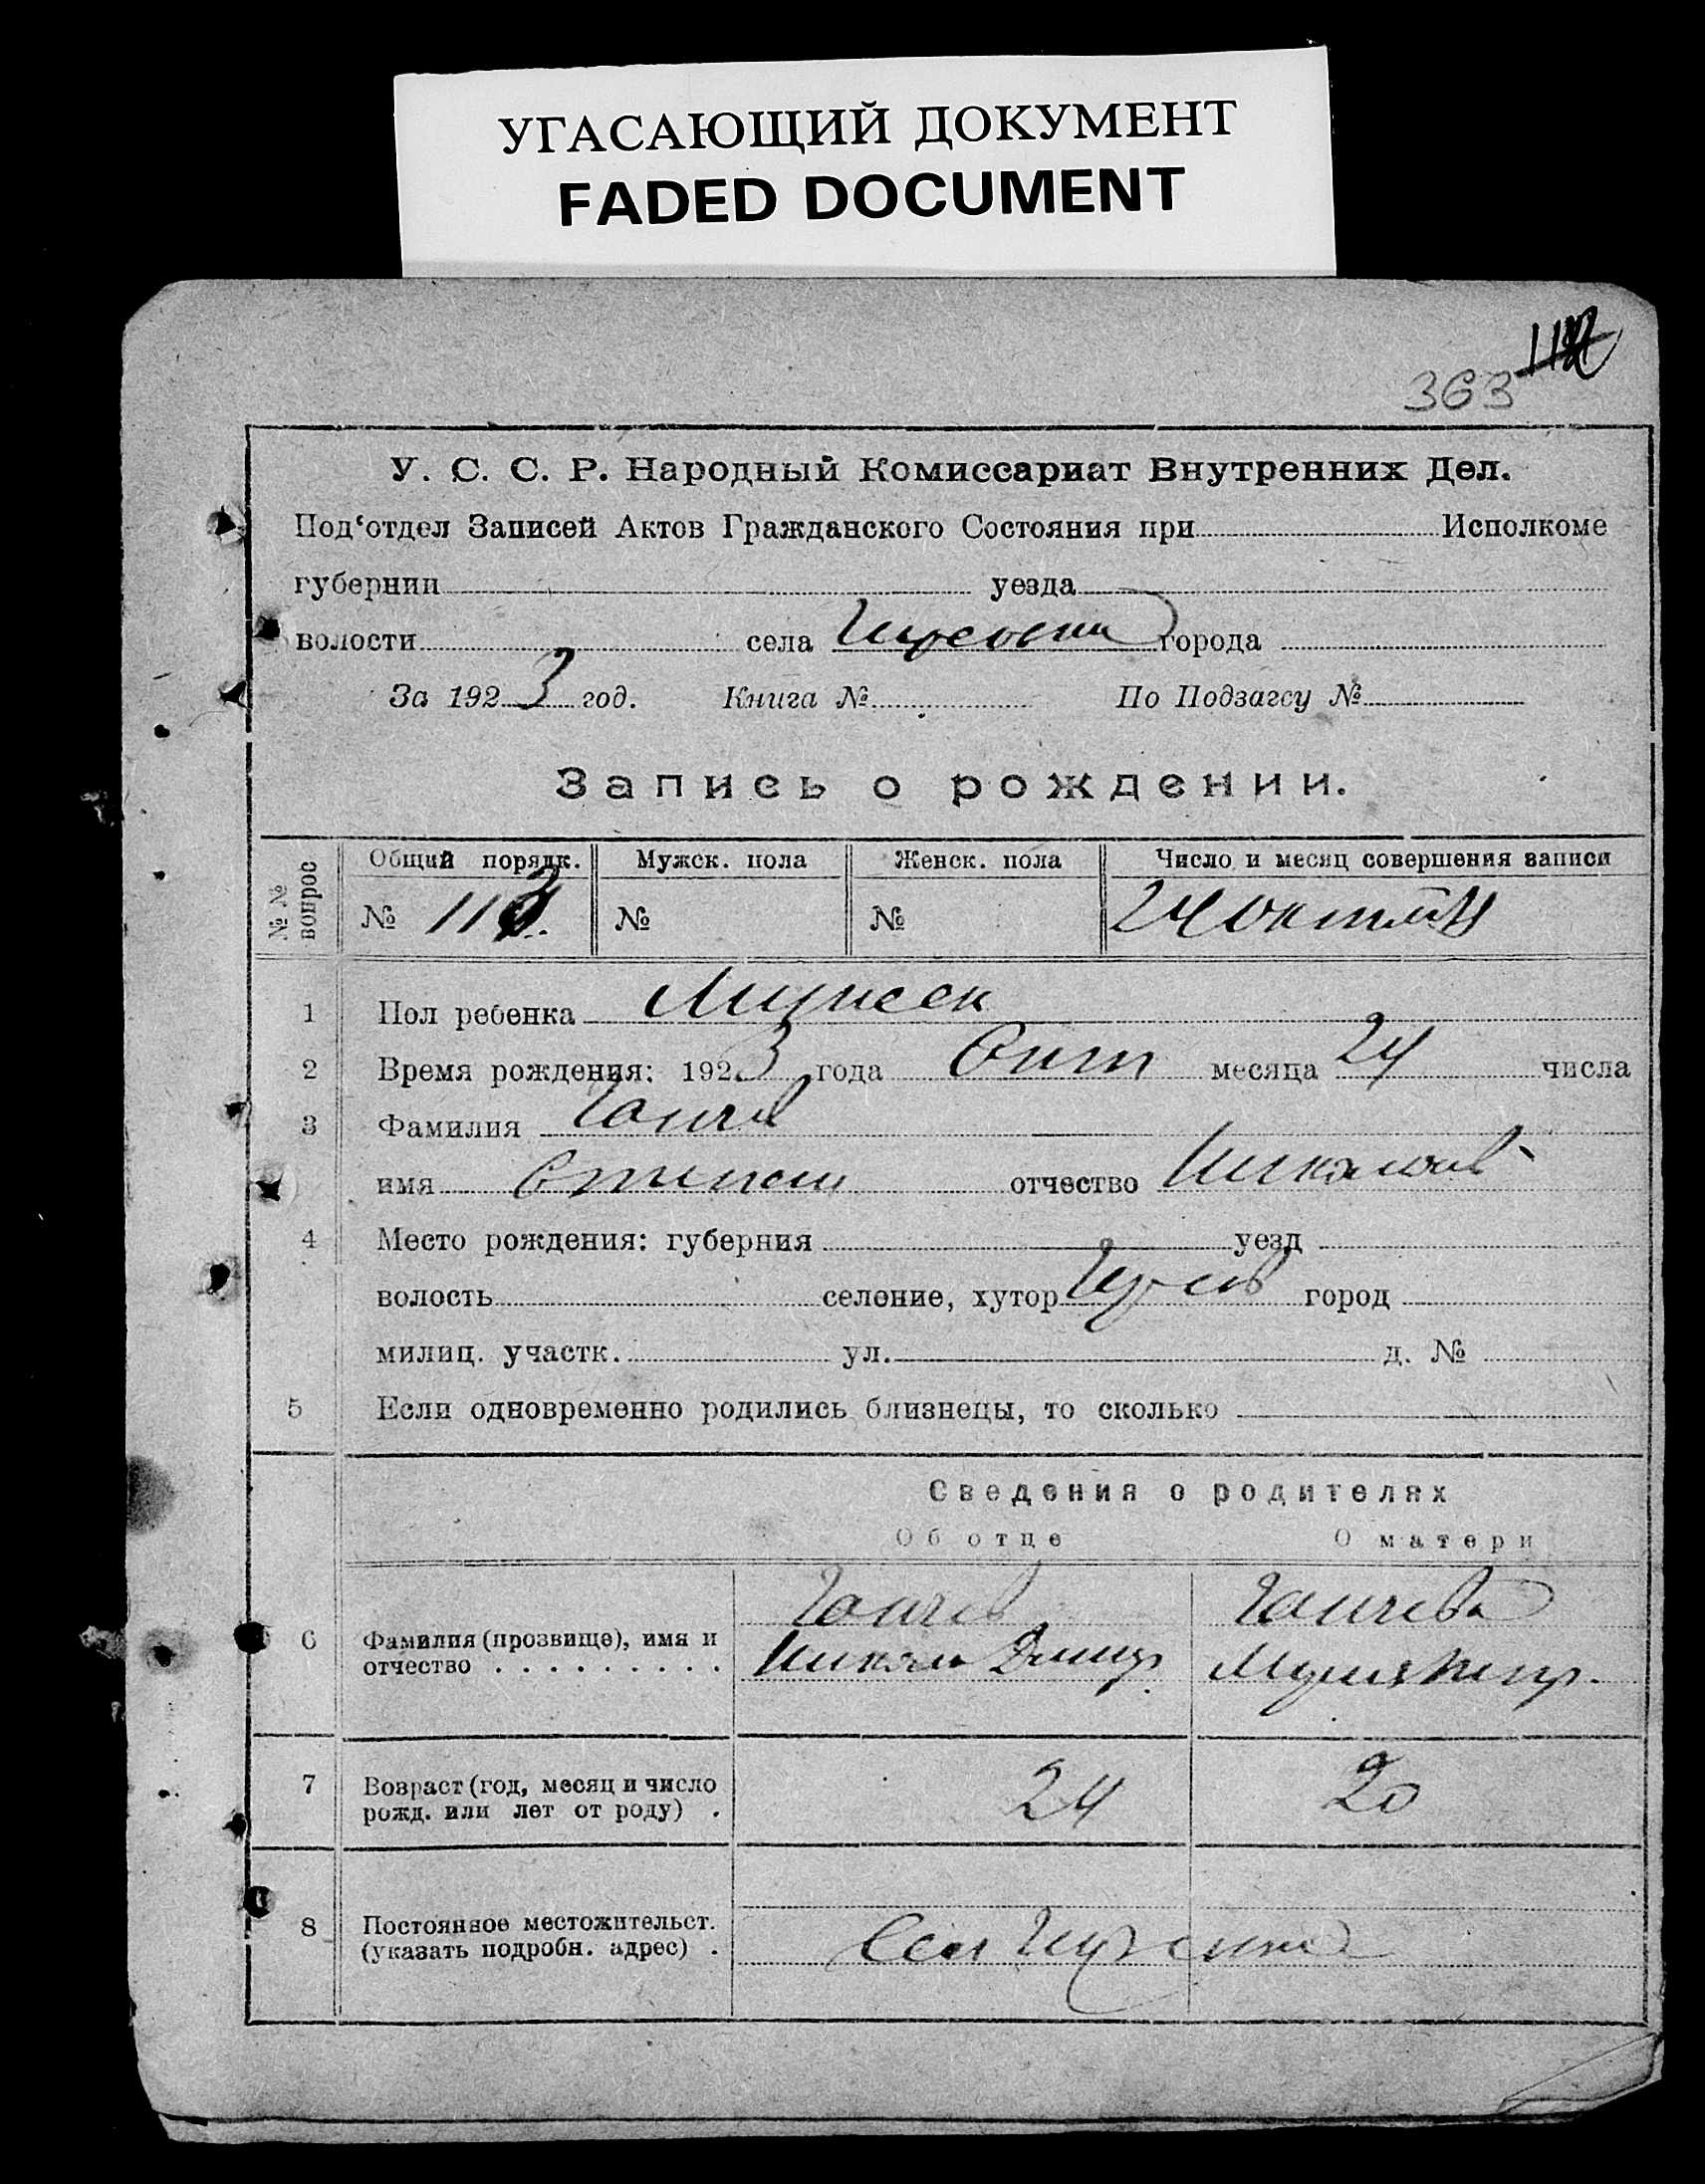 УГАСАЮЩИЙ ДОКУМЕНТ
FADED DOCUMENT
363
У. С. С. Р. Народный Комиссариат Внутренних Дел.
Под‘отдел Записей Актов Гражданского Состояния при Исполкоме
губернии уезда
волости села города
За 1923 год. Книга № По Подзагсу №
Запись о рождении.
№№ вопрос
Общий порядк. Мужск. пола Женск. пола Число и месяц совершения записи
№ № № 24
1 Пол ребенка Мужеск
2 Время рождения: 1923 года Окт месяца 24 числа
3 Фамилия Ганчев
имя Степан отчество Николаев
4 Место рождения: губерния уезд
волость селение, хутор город
милиц. участк. ул. д. №
5 Если одновременно родились близнецы, то сколько
Сведения о родителях
Об отце О матери
Ганчев Ганчева
6 Фамилия (прозвище), имя и
отчество . . . . . . . . . Никола Дмитр. Мария Петр.
7 Возраст (год, месяц и число
рожд. или лет от роду) . 24 20
8 Постоянное местожительст.
(указать подробн. адрес) .